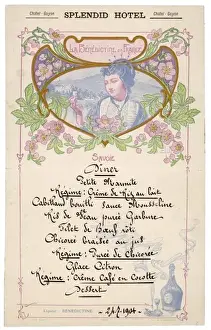 Chatel-Guyon SPLENDID HOTEL Chatel-Guyon
LA BÉNÉDICTINE en FRANCE
SAVOIE
Diner
Petite Marmite
Régime: Crème de Riz au lait
Cabillaud bouilli sauce Mousseline
Ris de Veau purée Garbure
Filet de Bœuf rôti
Chicorée braisée au jus
Régime: Purée de Chicorée
Glace Citron
Régime: Crème Café en Cocotte
Dessert
BÉNÉDICTINE
1904